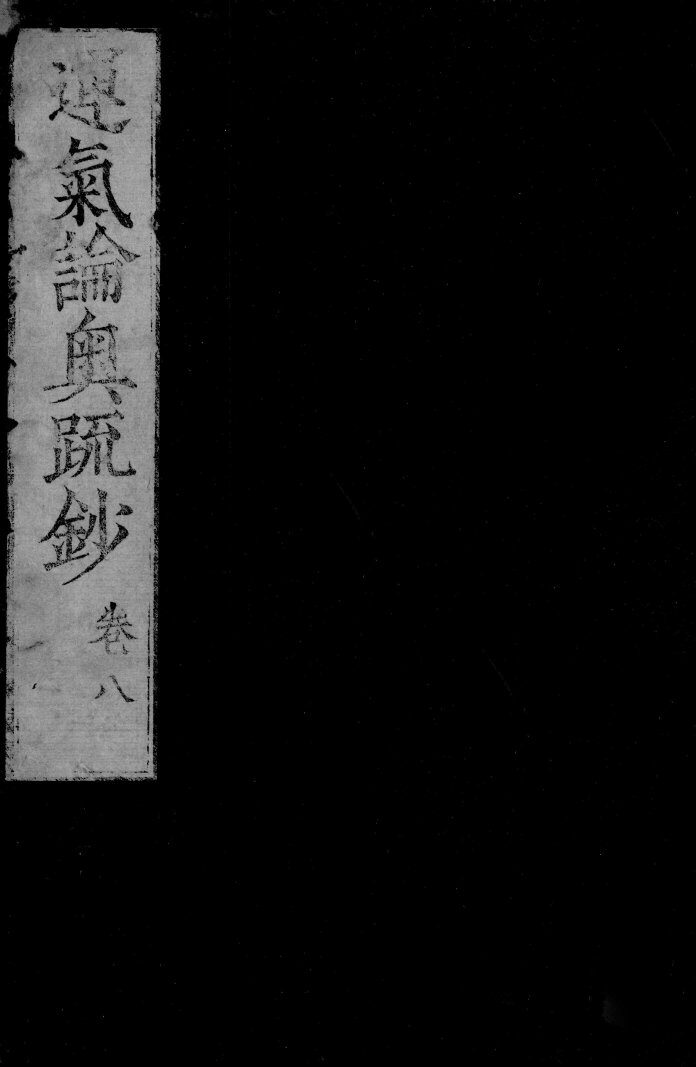 運氣論奥疏鈔
卷八